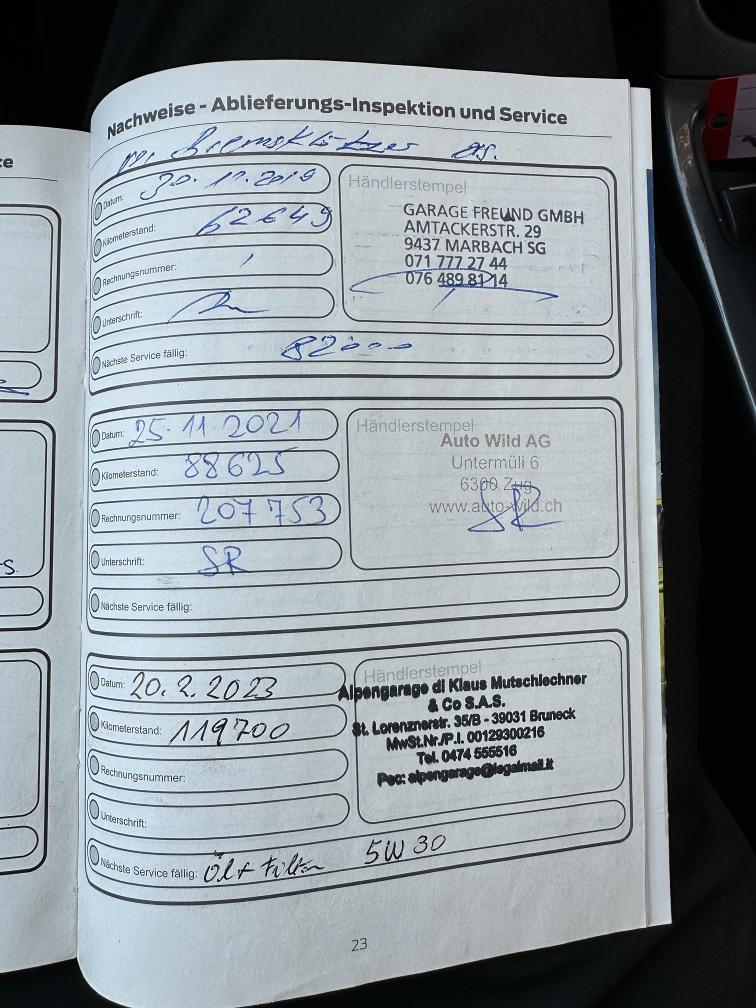 ce
Nachweise - Ablieferungs-Inspektion und Service
Datum: 30.12.2019
Kilometerstand: 62649
Rechnungsnummer:
Unterschrift:
Nächste Service fällig: 82000
Händlerstempel
GARAGE FREUND GMBH
AMTACKERSTR. 29
9437 MARBACH SG
071 777 27 44
076 489 81 14
Datum: 25.11.2021
Kilometerstand: 88625
Rechnungsnummer: 207753
Unterschrift: SR
Nächste Service fällig:
Händlerstempel
Auto Wild AG
Untermüli 6
6300 Zug
www.auto-wild.ch
SR
Datum: 20.2.2023
Kilometerstand: 119700
Rechnungsnummer:
Unterschrift:
Nächste Service fällig: Öl + Filter 5W30
Händlerstempel
Alpengarage di Klaus Mutschlechner
& Co S.A.S.
St. Lorenznerstr. 35/B - 39031 Bruneck
MwSt.Nr./P.I. 00129300216
Tel. 0474 555516
Pec: alpengarage@legalmail.it
23